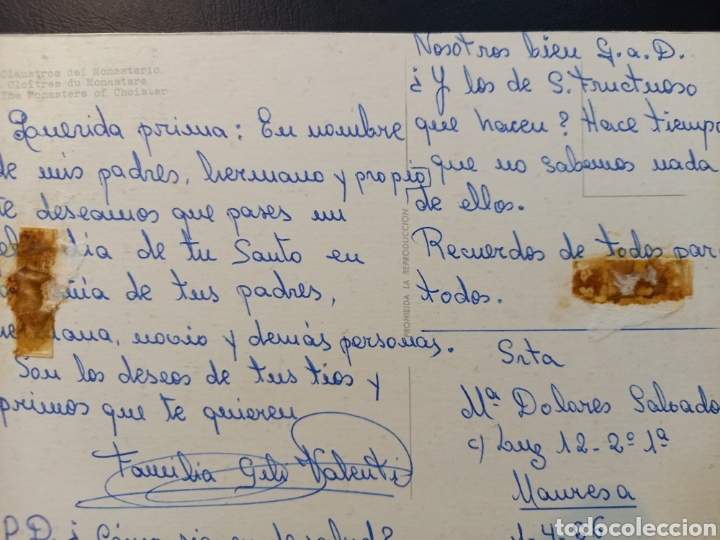 Claustros del Monasterio
Cloîtres du Monastere
The Monastere of Choisver
Querida prima: En nombre
de mis padres, hermano y propio
te deseamos que pases un
día de tu Santo en
de tus padres,
novio y demás personas.
Son los deseos de tus tíos y
primos que te quieren
Familia Gili Valentí
P.D. ¿Cómo
Nosotros bien G.a.D.
¿Y los de S. Fructuoso
que hacen? Hace tiempo
que no sabemos nada
de ellos.
Recuerdos de todos para
todos.
PROHIBIDA LA REPRODUCCION
Srta
Mª Dolores Salvado
c/ Luz 12-2º 1ª
Manresa
todocoleccion.net